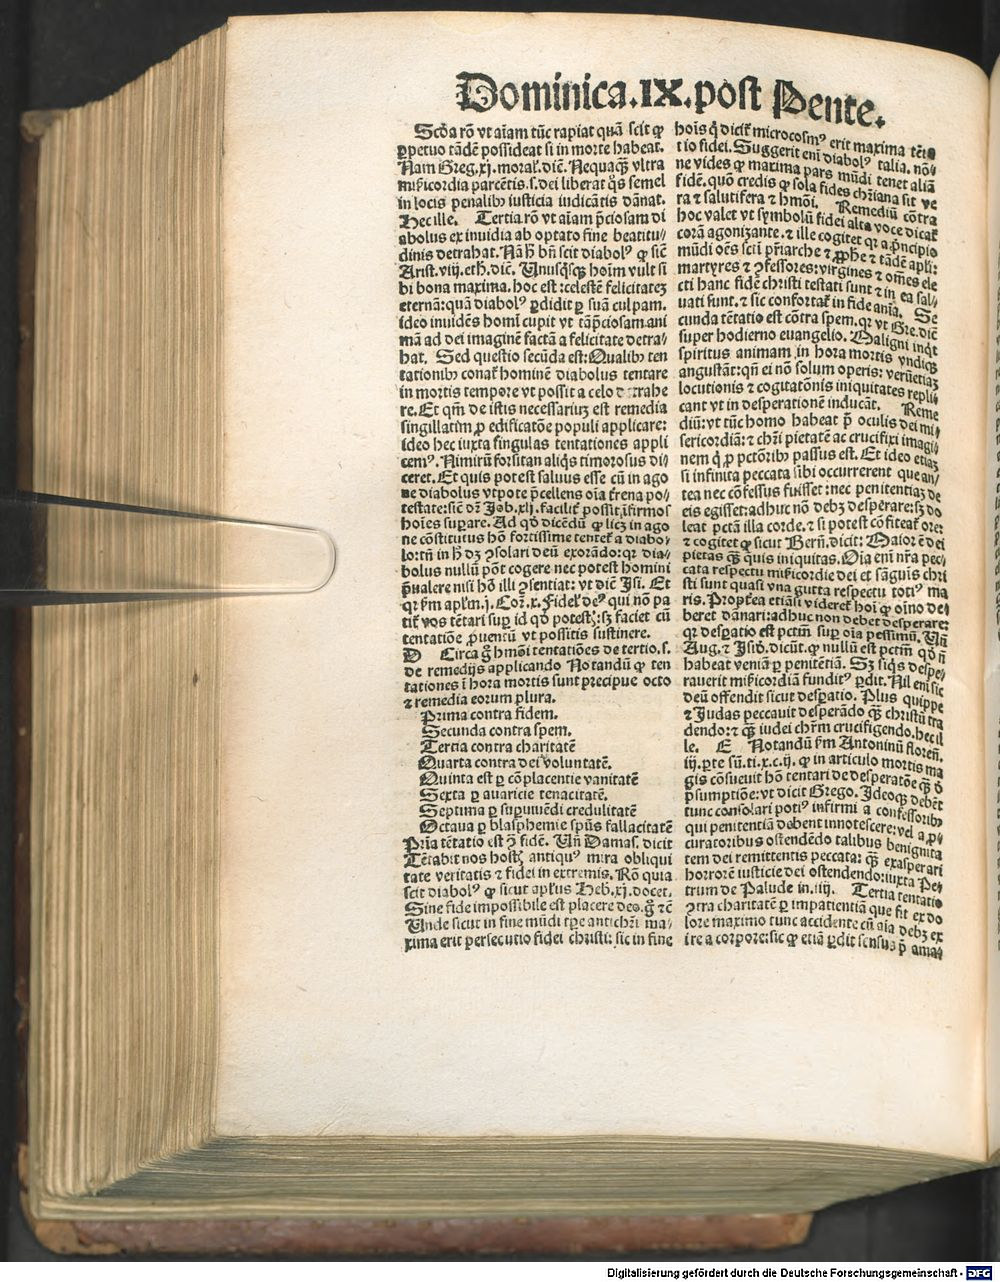 Dominica.IX.post Pente.
Scd̄a rō vt aīam tūc rapiat quā scit ꝙ
ꝑpetuo tādē possideat si in morte habeat.
Nam Greg.xj.moral.dic̄. Nequaqꝫ vltra
mīsicordia parcētis.s.dei liberat q̄s semel
in locis penalibꝫ iusticia iudicātis dānat.
Hec ille. Tertia rō vt aīam p̄ciosam di
abolus ex inuidia ab optato fine beatitu/
dinis detrahat. Nā h̄ bn̄ scit diabolꝰ ꝙ sic̄
Arist.viij.eth.dic̄. Unusq̄sqꝫ hoīm vult si
bi bona maxima. hoc est:celestē felicitateꝫ
eternā:quā diabolꝰ ꝑdidit ꝑ suā culpam.
ideo inuidēs homī cupit vt tāp̄ciosam ani
mā ad dei imaginē factā a felicitate detra/
hat. Sed questio secūda est: Qualibꝫ ten
tationibꝫ conat̄ hominē diabolus tentare
in mortis tempore vt possit a celo detrahe
re. Et qm̄ de istis necessariuꝫ est remedia
singillatim ꝓ edificatōe populi applicare:
ideo hec iuxta singulas tentationes appli
cemꝰ. Nimirū forsitan aliq̄s timorosus di/
ceret. Et quis potest saluus esse cū in ago
ne diabolus vtpote p̄cellens oīa t̄rena po/
testate:sic̄ dꝫ Job.xlj. facilit̄ possit īfirmos
hoīes suꝑare. Ad qd̄ dicēdū ꝙ licꝫ in ago
ne cōstitutus hō fortissime tentet̄ a diabo/
lo:tn̄ in h̄ dꝫ ꝯsolari deū exorādo:qꝛ dia/
bolus nullū pōt cogere nec potest homini
p̄ualere nisi hō illi ꝯsentiat: vt dic̄ Isi. Et
qꝛ ẜm apl̄m.j.Cor̄.x. Fidel̄ deꝰ qui nō pa
tit̄ vos tētari suꝑ id qd̄ potestꝫ:sꝫ faciet cū
tentatiōe ꝓuentū vt possitis sustinere.
D Circa g̊ hmōi tentatiōes de tertio.s.
de remedijs applicando Notandū ꝙ ten
tationes ī hora mortis sunt precipue octo
⁊ remedia eorum plura.
Prima contra fidem.
Secunda contra spem.
Tertia contra charitatē
Quarta contra dei voluntatē.
Quinta est ꝑ cōplacentie vanitatē
Sexta ꝑ auaricie tenacitatē.
Septima ꝑ suꝑuiuēdi credulitatē
Octaua ꝑ blasphemie spūs fallacitatē
Prīa tētatio est ꝯ̄ fidē. Un̄ Damas. dicit
Tētabit nos hostꝫ antiquꝰ mira obliqui
tate veritatis ⁊ fidei in extremis. Rō quia
scit diabolꝰ ꝙ sicut apl̄us Heb.xj. docet.
Sine fide impossibile est placere deo. g̊ ⁊c̄
Unde sicut in fine mūdi tꝑe antichri ma/
xima erit persecutio fidei christi: sic in fine
hoīs q̄ dicit̄ microcosmꝰ erit maxima tēta
tio fidei. Suggerit enī diabolꝰ talia. nō/
ne vides ꝙ maxima pars mūdi tenet aliā
fidē. quō credis ꝙ sola fides chr̄iana sit ve
ra ⁊ salutifera ⁊ hmōi. Remediū cōtra
hoc valet vt symbolū fidei alta voce dicat̄
corā agonizante. ⁊ ille cogitet qꝛ a p̄ncipio
mūdi oēs sctī pr̄iarche ⁊ ꝓphe ⁊ tādē apl̄i:
martyres ⁊ ꝯfessores:virgines ⁊ om̄es ele
cti hanc fidē christi testati sunt ⁊ in ea sal/
uati sunt. ⁊ sic confortat̄ in fide anīa. Se
cunda tētatio est cōtra spem. qꝛ vt Gre. dic̄
super hodierno euangelio. Maligni inq̄t
spiritus animam in hora mortis vndiqꝫ
angustāt:qn̄ ei nō solum operis: verūetiaꝫ
locutionis ⁊ cogitatōnis iniquitates repli
cant vt in desperationē inducāt. Reme
diū:vt tūc homo habeat p̄ oculis dei mi/
sericordiā: ⁊ chr̄i pietatē ac crucifixi imagi/
nem q̄ ꝓ pctōribꝫ passus est. Et ideo etiaꝫ
si infinita peccata sibi occurrerent que an/
tea nec cōfessus fuisset:nec penitentiaꝫ de
eis egisset:adhuc nō debꝫ desperare:sꝫ do
leat pctā illa corde. ⁊ si potest cōfiteat̄ ore:
⁊ cogitet ꝙ sicut Bern̄. dicit: Maior ē dei
pietas qꝫ quis iniquitas. Oīa enī nr̄a pec/
cata respectu mīsicordie dei et sāguīs chri
sti sunt quasi vna gutta respectu totiꝰ ma
ris. Propt̄ea etiāsi videret̄ hoī ꝙ oīno de/
beret dānari:adhuc non debet desperare:
qꝛ desꝑatio est pctm̄ suꝑ oīa pessimū. Un̄
Aug. ⁊ Isid̄. dicūt. ꝙ nullū est pctm̄ qd̄ n̄
habeat veniā ꝑ penitētiā. Sꝫ siq̄s despe/
rauerit mīsicordiā funditꝰ ꝑdit. Nil enī sic
deū offendit sicut desꝑatio. Plus quippe
⁊ Judas peccauit desperādo qꝫ christū tra
dendo:⁊ qꝫ iudei chr̄m crucifigendo. hec il
le. E Notandū ẜm Antoninū floren̄.
iij.ꝑte sū.ti.x.c.ij. ꝙ in articulo mortis ma
gis cōsueuit hō tentari de desperatōe qꝫ d̄
p̄sumptiōe:vt dicit Grego. Ideoqꝫ debēt
tunc consolari potiꝰ infirmi a confessoribꝫ
qui penitentiā debent innotescere:vel a ꝓ/
curatoribus ostendēdo talibus benignita
tem dei remittentis peccata: qꝫ exasperari
horrorē iusticie dei ostendendo:iuxta Pe/
trum de Palude in.iiij. Tertia tentatio
ꝯtra charitatē ꝑ impatientiā que fit ex do
lore maximo tunc accidente cū aīa debꝫ ex
ire a corpore:sic ꝙ etiā ꝑdit sensus p̄ ama/
Digitalisierung gefördert durch die Deutsche Forschungsgemeinschaft - DFG